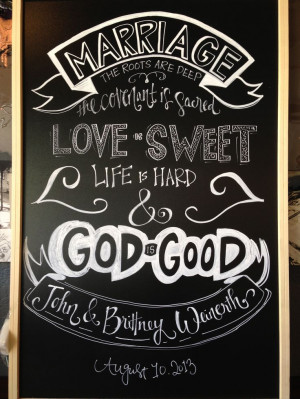 MARRIAGE
THE ROOTS ARE DEEP
the covenant is sacred
LOVE IS SWEET
LIFE IS HARD
&
GOD IS GOOD
John & Brittney
August 10.2013